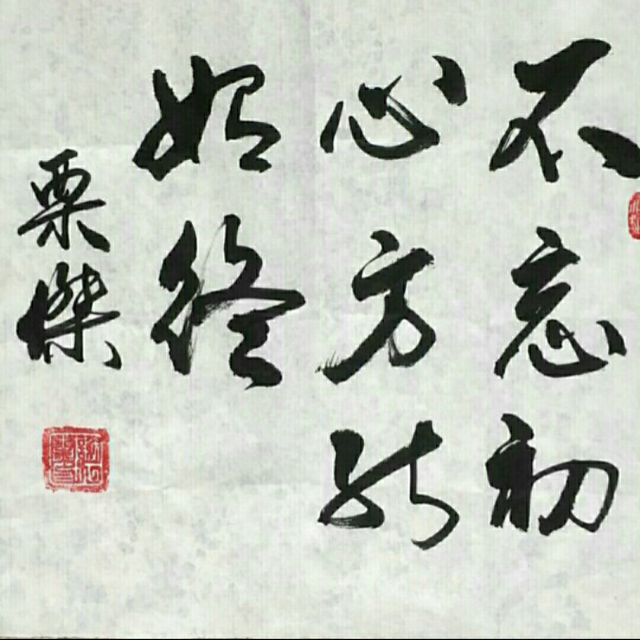 不忘初
心方能
始终
栗傑